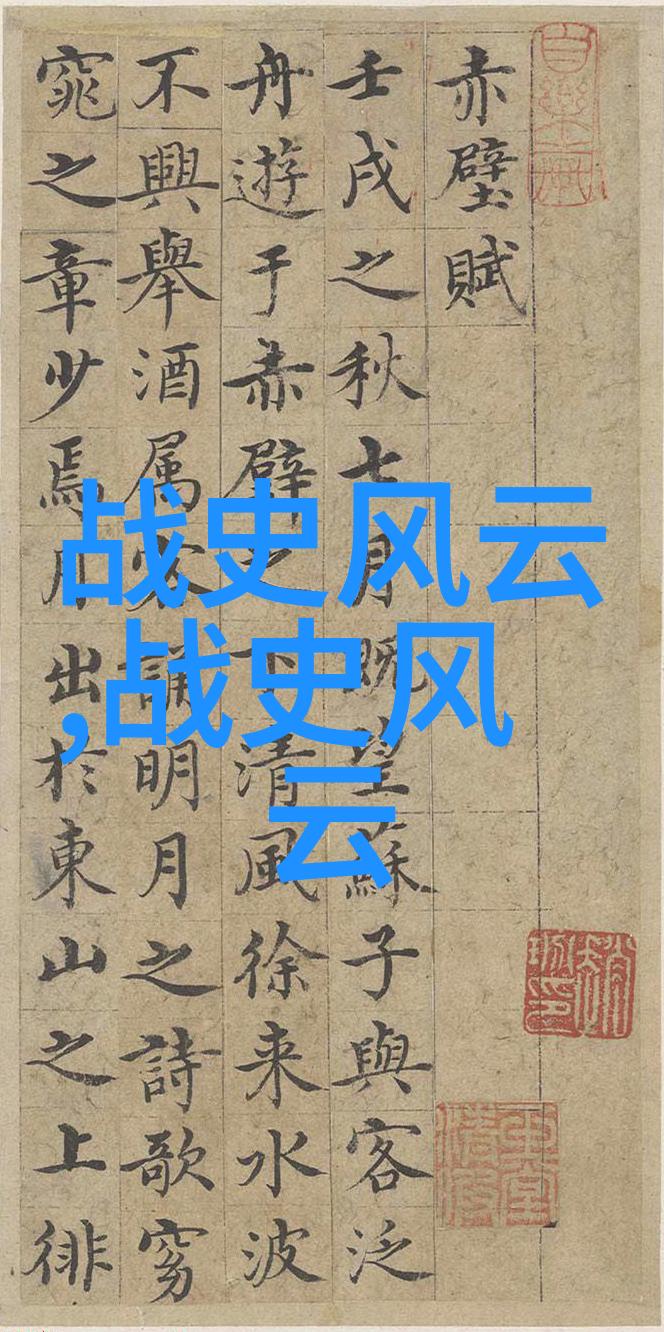 赤壁賦
壬戌之秋七月既望蘇子與客泛
舟遊于赤壁之下清風徐来水波
不興舉酒属客誦明月之詩歌窈
窕之章少焉月出於東山之上徘
战史风云
,战史风
云